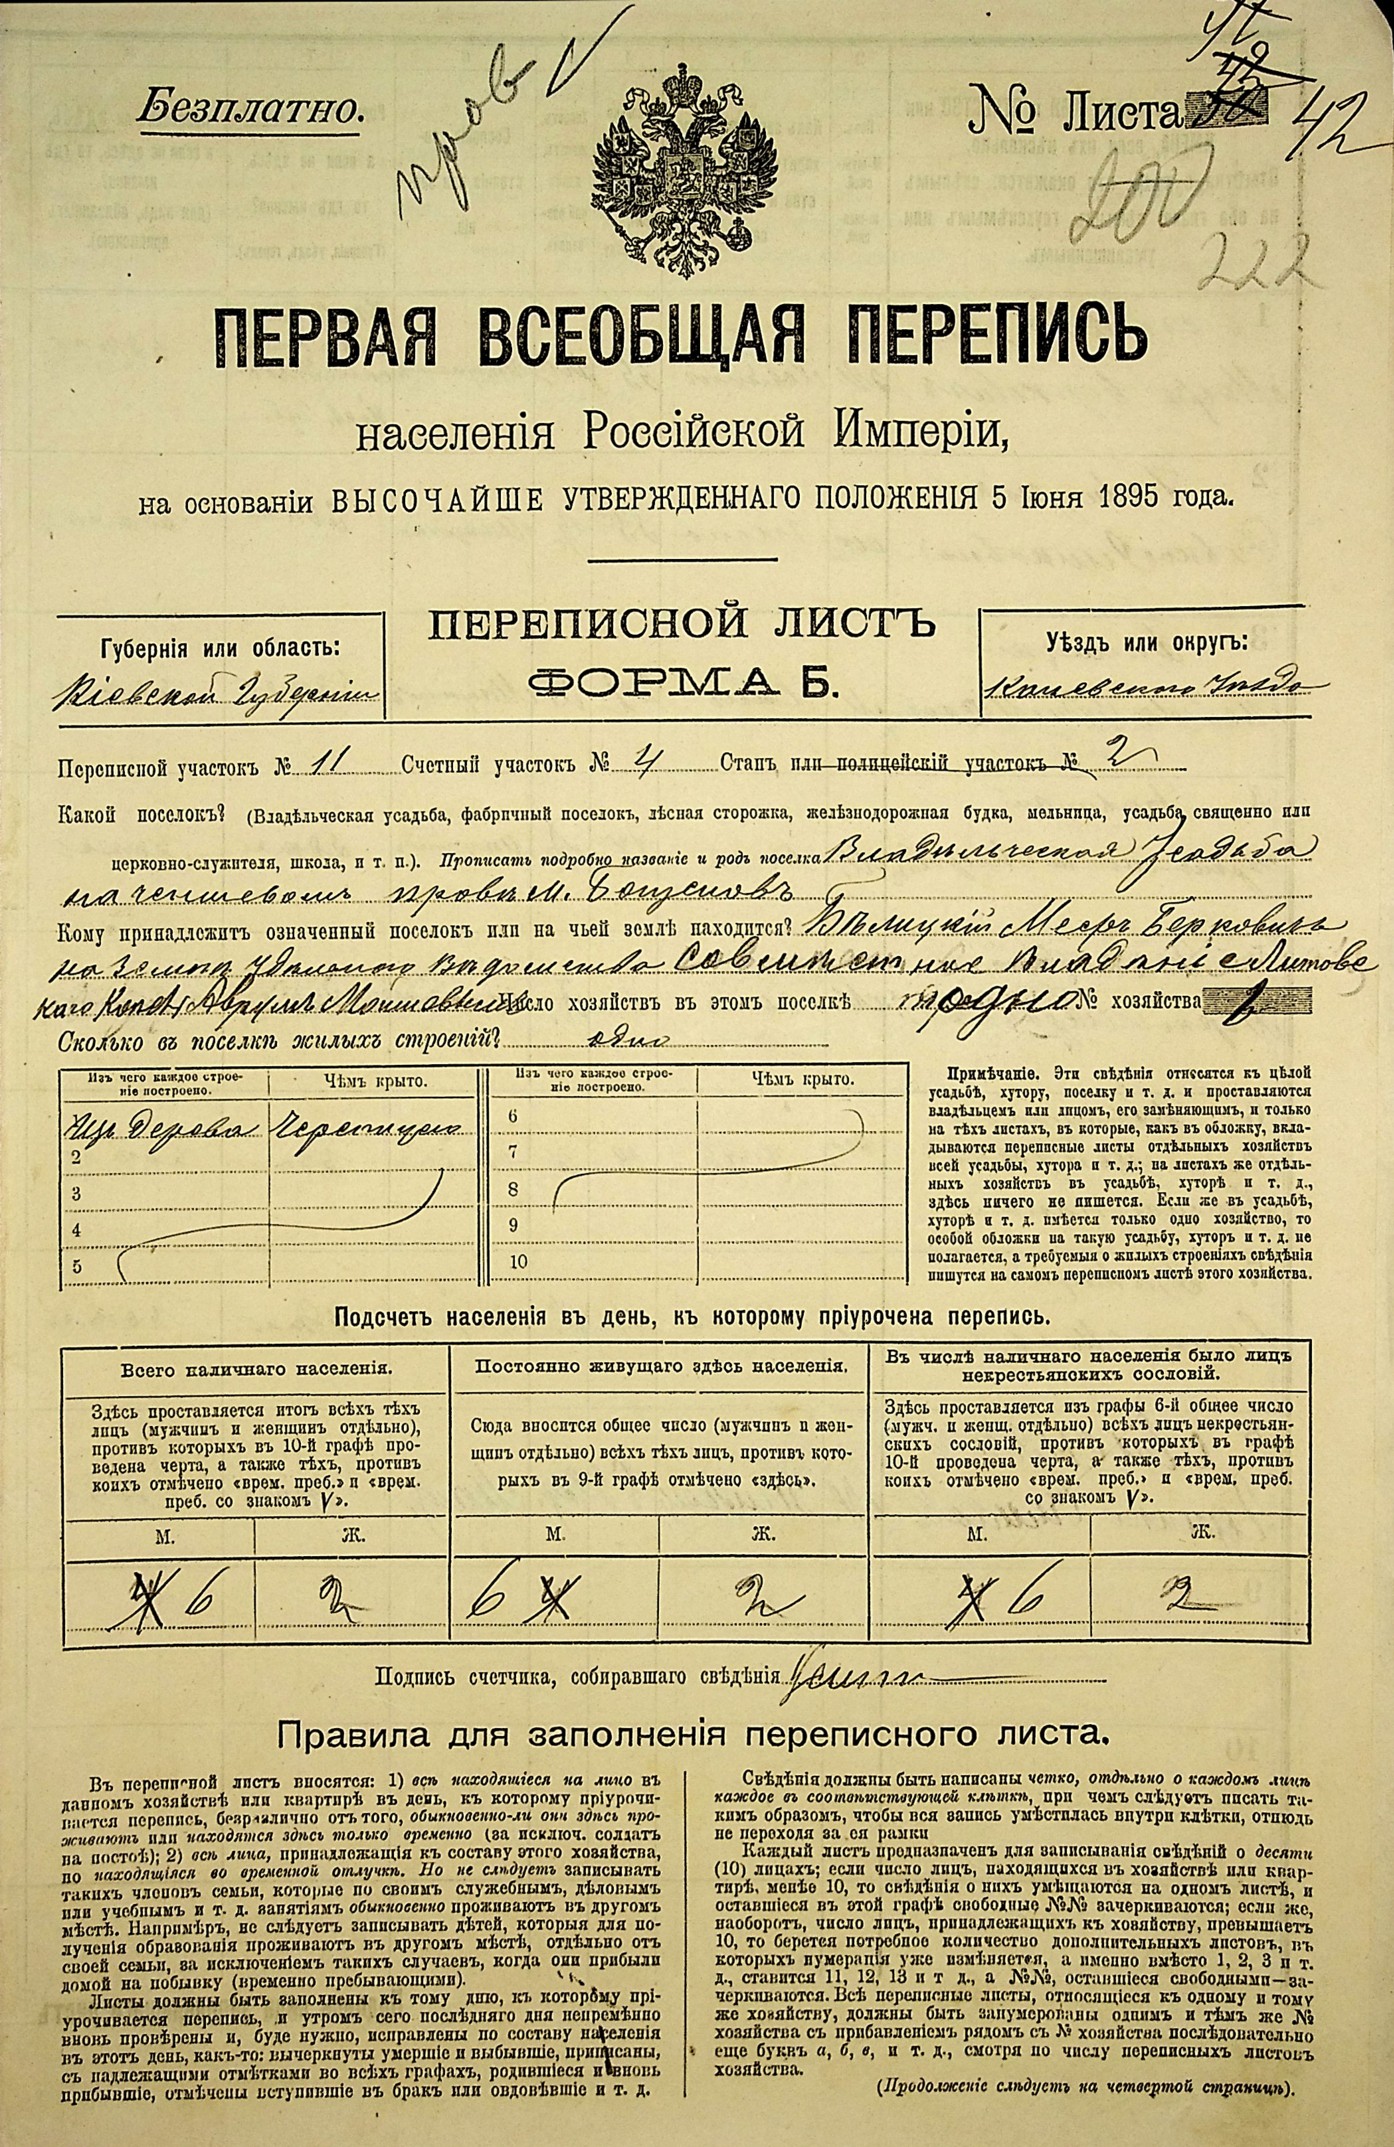 Безплатно.
пров
№ Листа
42
200
222
ПЕРВАЯ ВСЕОБЩАЯ ПЕРЕПИСЬ
населенія Россійской Имперіи,
на основаніи ВЫСОЧАЙШЕ УТВЕРЖДЕННАГО ПОЛОЖЕНІЯ 5 Іюня 1895 года.
ПЕРЕПИСНОЙ ЛИСТЪ
ФОРМА Б.
Губернія или область:
Кіевской Губерніи
Уѣздъ или округъ:
Каневского Уѣзда
Переписной участокъ № 11 Счетный участокъ № 4 Станъ или полицейскій участокъ № 2
Какой поселокъ? (Владѣльческая усадьба, фабричный поселокъ, лѣсная сторожка, желѣзнодорожная будка, мельница, усадьба священно или
церковно-служителя, школа, и т. п.). Прописать подробно названіе и родъ поселка Владѣльческая Усадьба
на чиншевомъ правѣ м.
Кому принадлежитъ означенный поселокъ или на чьей землѣ находится? Бѣлицкій Мееръ Берковичъ
на Земли Удѣльного Вѣдомства Совместное Владѣніе Литовс
каго Аврумъ Число хозяйствъ въ этомъ поселкѣ одно № хозяйства 1
Сколько въ поселкѣ жилыхъ строеній? одно
Изъ чего каждое строе-
ніе построено.
Чѣмъ крыто.
Изъ чего каждое строе-
ніе построено.
Чѣмъ крыто.
Изъ Дерова
2
3
4
5
6
7
8
9
10
Примѣчаніе. Эти свѣдѣнія относятся къ цѣлой
усадьбѣ, хутору, поселку и т. д. и проставляются
владѣльцемъ или лицомъ, его замѣняющимъ, и только
на тѣхъ листахъ, въ которые, какъ въ обложку, вкла-
дываются переписные листы отдѣльныхъ хозяйствъ
всей усадьбы, хутора и т. д.; на листахъ же отдѣль-
ныхъ хозяйствъ въ усадьбѣ, хуторѣ и т. д.,
здѣсь ничего не пишется. Если же въ усадьбѣ,
хуторѣ и т. д. имѣется только одно хозяйство, то
особой обложки на такую усадьбу, хуторъ и т. д. не
полагается, а требуемыя о жилыхъ строеніяхъ свѣдѣнія
пишутся на самомъ переписномъ листѣ этого хозяйства.
Подсчетъ населенія въ день, къ которому пріурочена перепись.
Всего наличнаго населенія.
Здѣсь проставляется итогъ всѣхъ тѣхъ
лицъ (мужчинъ и женщинъ отдѣльно),
противъ которыхъ въ 10-й графѣ про-
ведена черта, а также тѣхъ, противъ
коихъ отмѣчено «врем. преб.» и «врем.
преб. со знакомъ V».
Постоянно живущаго здѣсь населенія.
Сюда вносится общее число (мужчинъ и жен-
щинъ отдѣльно) всѣхъ тѣхъ лицъ, противъ кото-
рыхъ въ 9-й графѣ отмѣчено «здѣсь».
Въ числѣ наличнаго населенія было лицъ
некрестьянскихъ сословій.
Здѣсь проставляется изъ графы 6-й общее число
(мужч. и женщ. отдѣльно) всѣхъ лицъ некрестьян-
скихъ сословій, противъ которыхъ въ графѣ
10-й проведена черта, а также тѣхъ, противъ
коихъ отмѣчено «врем. преб.» и «врем. преб.
со знакомъ V».
М. Ж. М. Ж. М. Ж.
4 6 2 6 4 2 4 6 2
Подпись счетчика, собиравшаго свѣдѣнія
Правила для заполненія переписного листа.
Въ переписной листъ вносятся: 1) всѣ находящіеся на лицо въ
данномъ хозяйствѣ или квартирѣ въ день, къ которому пріурочи-
вается перепись, безразлично отъ того, обыкновенно-ли они здѣсь про-
живаютъ или находятся здѣсь только временно (за исключ. солдатъ
на постоѣ); 2) всѣ лица, принадлежащія къ составу этого хозяйства,
но находящіяся во временной отлучкѣ. Но не слѣдуетъ записывать
такихъ членовъ семьи, которые по своимъ служебнымъ, дѣловымъ
или учебнымъ и т. д. занятіямъ обыкновенно проживаютъ въ другомъ
мѣстѣ. Напримѣръ, не слѣдуетъ записывать дѣтей, которыя для по-
лученія образованія проживаютъ въ другомъ мѣстѣ, отдѣльно отъ
своей семьи, за исключеніемъ такихъ случаевъ, когда они прибыли
домой на побывку (временно пребывающими).
Листы должны быть заполнены къ тому дню, къ которому прі-
урочивается перепись, и утромъ сего послѣдняго дня непремѣнно
вновь провѣрены и, буде нужно, исправлены по составу населенія
въ этотъ день, какъ-то: вычеркнуты умершіе и выбывшіе, приписаны,
съ надлежащими отмѣтками во всѣхъ графахъ, родившіеся и вновь
прибывшіе, отмѣчены вступившіе въ бракъ или овдовѣвшіе и т. д.
Свѣдѣнія должны быть написаны четко, отдѣльно о каждомъ лицѣ
каждое въ соотвѣтствующей клѣткѣ, при чемъ слѣдуетъ писать та-
кимъ образомъ, чтобы вся запись умѣстилась внутри клѣтки, отнюдь
не переходя за ея рамки
Каждый листъ предназначенъ для записыванія свѣдѣній о десяти
(10) лицахъ; если число лицъ, находящихся въ хозяйствѣ или квар-
тирѣ, менѣе 10, то свѣдѣнія о нихъ умѣщаются на одномъ листѣ, и
оставшіеся въ этой графѣ свободные №№ зачеркиваются; если же,
наоборотъ, число лицъ, принадлежащихъ къ хозяйству, превышаетъ
10, то берется потребное количество дополнительныхъ листовъ, въ
которыхъ нумерація уже измѣняется, а именно вмѣсто 1, 2, 3 и т.
д., ставится 11, 12, 13 и т д., а №№, оставшіеся свободными—за-
черкиваются. Всѣ переписные листы, относящіеся къ одному и тому
же хозяйству, должны быть занумерованы однимъ и тѣмъ же №
хозяйства съ прибавленіемъ рядомъ съ № хозяйства послѣдовательно
еще буквъ а, б, в, и т. д., смотря по числу переписныхъ листовъ
хозяйства.
(Продолженіе слѣдуетъ на четвертой страницѣ).